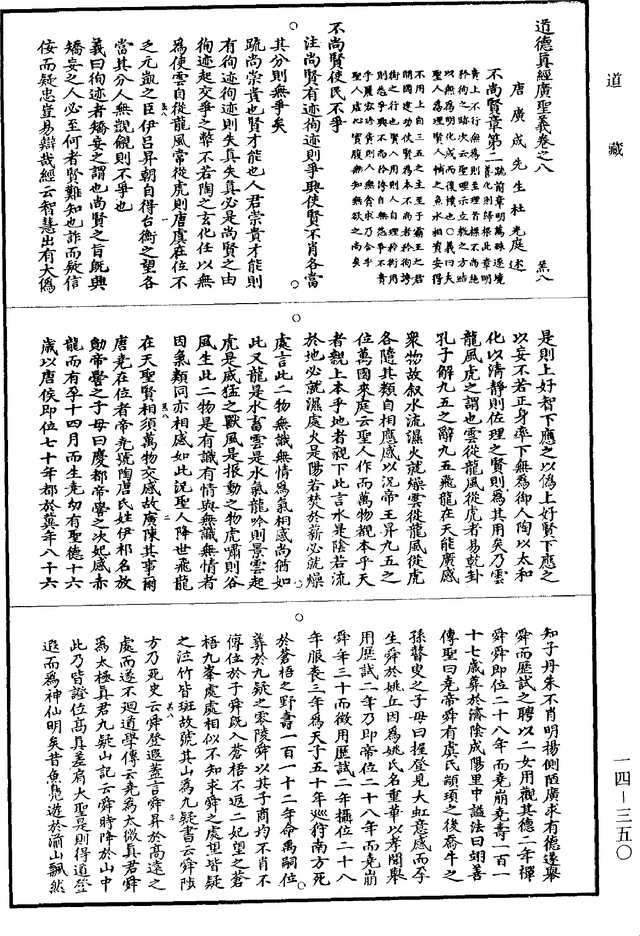 道藏
道德真經廣聖義卷之八 羔八
唐廣成先生杜光庭述
不尚賢章第二
不尚賢使民不爭
注尚賢有迹徇迹則爭興使賢不肖各當
其分則無爭矣
疏尚崇貴也賢才能也人君崇貴才能則
有徇迹徇迹則失真失真必是尚賢之由
徇迹起交爭之弊不若陶之玄化任以無
為使雲自從龍風常從虎則唐虞在位不
之元凱之臣伊呂昇朝自得台衡之望各
當其分人無覬覦則不爭也
義曰徇迹者矯妄之謂也尚賢之旨既興
矯妄之人必至何者賢難知也詐而疑信
侫而疑忠豈易辯哉經云智慧出有大偽
是則上好智下應之以偽上好賢下應之
以妄不若正身率下無為御人陶以太和
化以清靜則佐理之賢則為其用矣乃雲
龍風虎之謂也雲從龍風從虎者易乾卦
孔子解九五之辭九五飛龍在天能廣感
眾物故叙水流濕火就燥雲從龍風從虎
各隨其類自相應感以況帝王昇九五之
位萬國來庭云聖人作而萬物覩本乎天
者親上本乎地者親下此言水是陰若流
於地必就濕處火是陽若焚於薪必就燥
處言此二物無識無情為氣相感尚猶如
此又龍是水畜雲是水氣龍吟則景雲起
虎是威猛之獸風是振動之物虎嘯則谷
風生此二物是有識有情與無識無情者
因氣類同亦相感如此況聖人降世飛龍
在天聖賢相須萬物交感故廣陳其事爾
唐堯在位者帝堯號陶唐氏姓伊祁名放
勛帝嚳之子母曰慶都帝嚳之次妃感赤
龍而有孕十四月而生堯幼有聖德十六
歲以唐侯即位七十年都於冀年八十六
知子丹朱不肖明揚側陋廣求有德遂舉
舜而歷試之聘以二女用觀其德二年禪
舜舜即位二十八年而堯崩堯壽一百一
十七歲葬於濟陰成陽里中謚法曰翊善
傳聖曰堯帝舜有虞氏顓頊之後喬牛之
孫瞽叟之子母曰握登見大虹意感而孕
生舜於姚丘因為姚氏名重華以孝聞舉
用歷試二年乃即帝位二十八年而堯崩
舜年三十而徵用歷試二年攝位二十八
年服喪三年為天子五十年巡狩南方死
於蒼梧之野壽一百一十二年命禹嗣位
葬於九疑之零陵舜以其子商均不肖不
傳位於子舜既入蒼梧不返二妃望之蒼
梧九峯處處相似不知求舜之處望皆疑
之泣竹皆斑故號其山為九疑書云舜陟
方乃死史云舜登遐蓋言舜昇於高遠之
處而遂不迴道學傳云堯為太微真君舜
為太極真君九疑山記云舜時降於山中
此乃皆證位高真差肩大聖是則得道登
遐而為神仙明矣昔魚鳧遊於湔山飄然
一四—三五〇